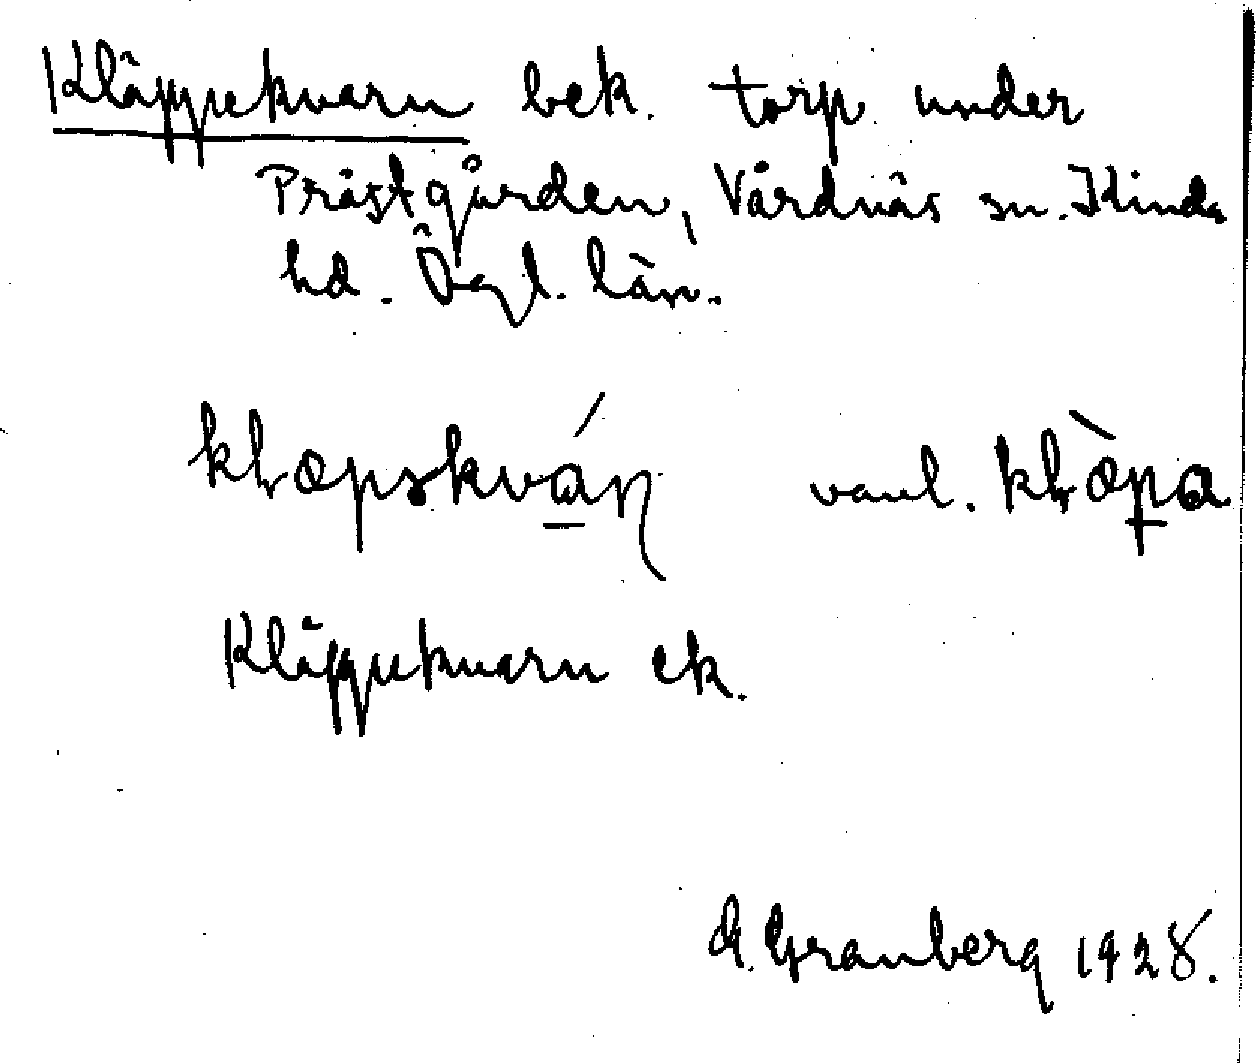 Kläppekvarn bek. torp under
Prästgården, Vårdnäs sn. Kinda
hd. Ögl. län.
vanl.
Kläppekvarn ek.
G. Granberg 1928.